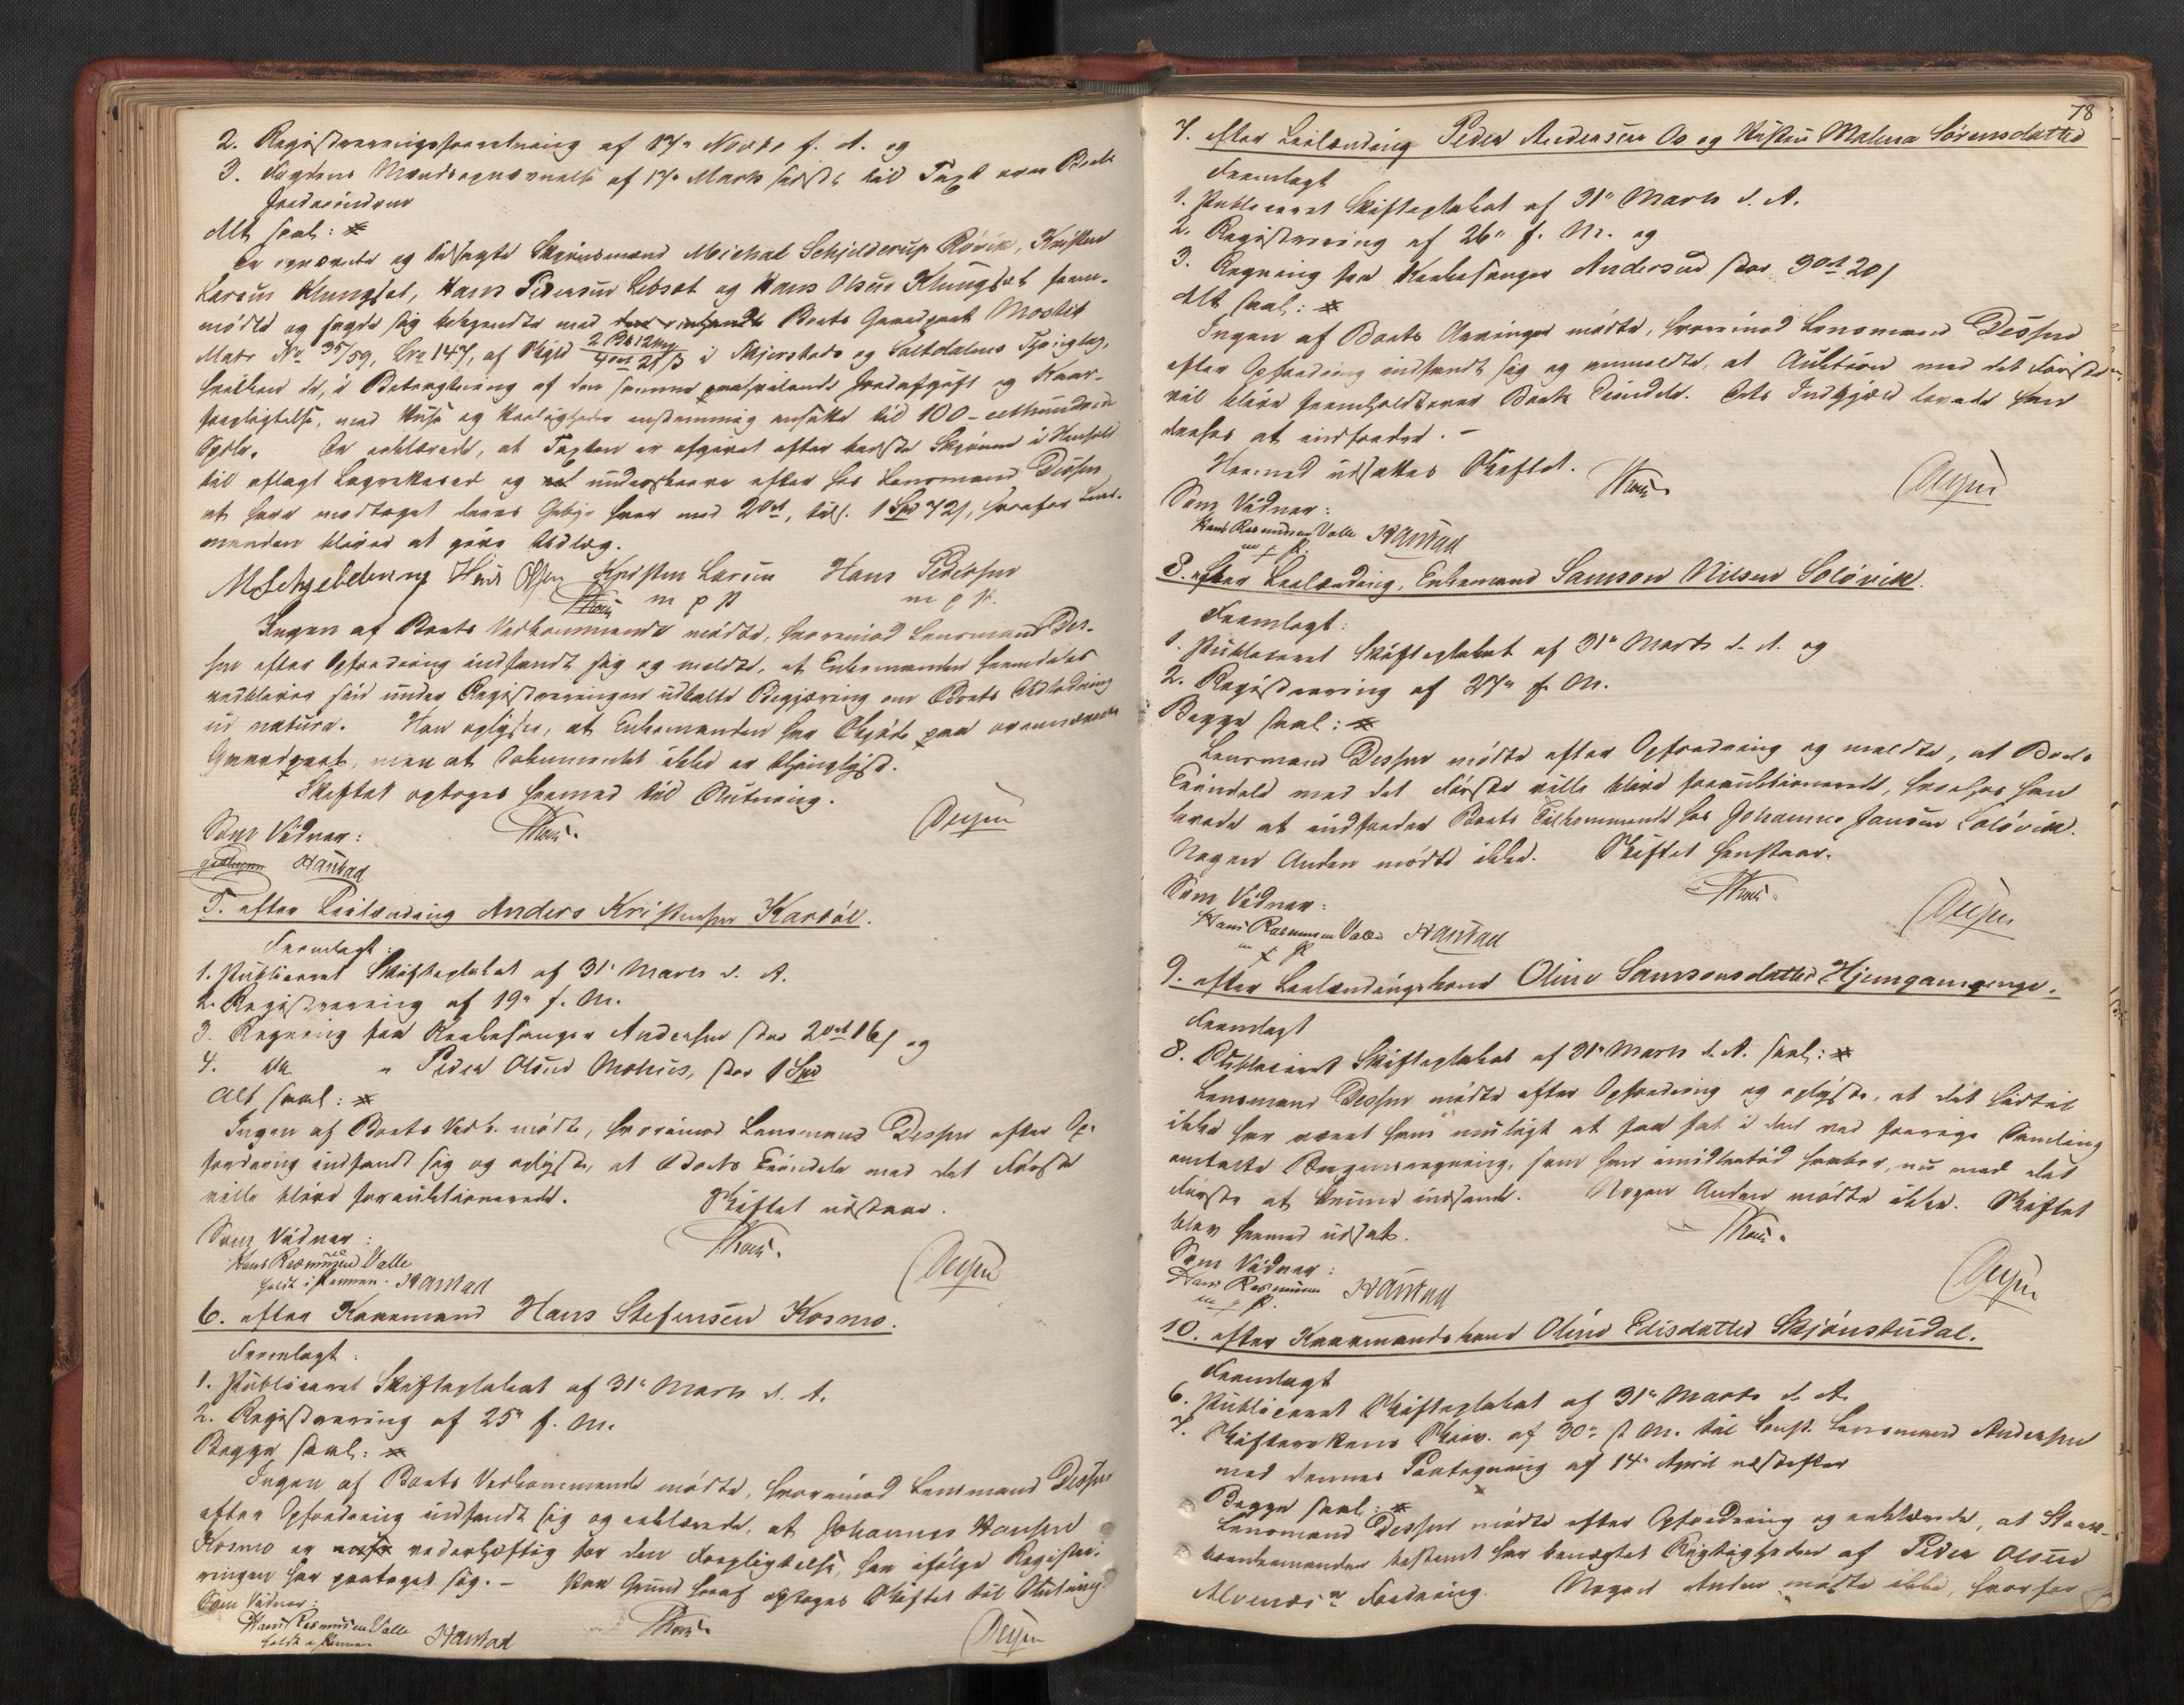 2. Registreringsforretning af 17de Novbr f. A. og
3. Fogdens Mandsopnævnelse af 17de Marts sidstl. til Taxt over Boets
Jordeiendom
Alt saal: #
De opnævnte og tilsagte Skjønsmænd Michal Schjelderup Røvik, Kristen
Larsen Klungset, Hans Pedersen Lebsøt og Hans Olsen Klungset frem-
mødte og sagde sig bekjendte med Boets Gaardpart Mosleit
Matr No 35/59, Lno 147, af Skyld 2 Pd 12 Mkr / 4 ort 21 s i Skjerstads og Saltdalens Thinglag,
hvilken de, i Betragtning af den samme paahvilende Jordafgift og Kaar-
forpligtelse, med Huse og Herligheder enstemmig ansatte til 100 - etthundrede
Spdlr. De erklærede, at Taxten er afgivet efter bedste Skjønnende i Henhold
til aflagt Lagrettesed og underskrev efter hos Lensmand Dessen
at have modtaget deres Gebyr hver med 2 ort, tils. 1 Spd 72 s, hvorfor Lens-
manden bliver at give Udlæg.
MSchjelderup Hans Olsen Kristen Larsen Hans Pedersen
m p P m p P.
Ingen af Boets Vedkommende mødte, hvorimod Lensmand Des-
sen efter Opfordring indfandt sig og meldte, at Enkemanden fremdeles
vedbliver sin under Registreringen udtalte Begjæring om Boets Udlodning
in natura. Han oplyser, at Enkemanden har Skjøde paa ovennævnte
Gaardpart, men at Dokumentet ikke er thinglyst.
Skiftet optoges hermed til Slutning.
Som Vidner:
Hanstad
5. efter Leilænding Anders Kristensen Karbøl.
Fremlagt:
1. Publiceret Skifteplakat af 31te Marts d. A.
2. Registrering af 19de f. M.
3. Regning fra Kirkesanger Andersen stor 2 ort 16 s og
4. do " Peder Olsen Mohus, stor 1 Spd
Alt saal: #
Ingen af Boets Vedk. mødte, hvorimod Lensmand Dessen efter Op-
fordring indfandt sig og oplyste, at Boets Eiendele med det Første
ville blive forauktionerede. Skiftet udstaar.
Som Vidner:
Hans Rasmussen Valle
holdt i Pennen. Hanstad
6. efter Kaarmand Hans Stefensen Kosmo.
Fremlagt:
1. Publiceret Skifteplakat af 31te Marts d. A.
2. Registrering af 25de f. M.
Begge saal: #
Ingen af Boets Vedkommende mødte, hvorimod Lensmand Dessen
efter Opfordring indfandt sig og erklærede, at Johannes Hansen
Kosmo er vederhæftig for den Forpligtelse, han ifølge Registre-
ringen har paataget sig. - Paa Grund heraf optoges Skiftet til Slutning.
Som Vidner:
Hans Rasmussen Valle
holdt i Pennen Hanstad
78
7. efter Leilænding Peder Andersen Os og Hustru Malena Sørensdatter
Fremlagt
1. Publiceret Skifteplakat af 31te Marts d. A.
2. Registrering af 26de f. M. og
3. Regning fra Kirkesanger Andersen stor 3 ort 20 s
Alt saal: #
Ingen af Boets Arvinger mødte, hvorimod Lensmand Dessen
efter Opfordring indfandt sig og anmeldte, at Auktion med det Første
vil blive fremholdt over Boets Eiendele. Dets Indgjæld lovede han
derfor at indfordre. -
Hermed udsattes Skiftet.
Som Vidner:
Hans Rasmussen Valle Hanstad
m f P.
8. efter Leilænding, Enkemand Samson Nilsen Soløvik.
Fremlagt:
1. Publiceret Skifteplakat af 31te Marts d. A. og
2. Registrering af 27de f. M.
Begge saal: #
Lensmand Dessen mødte efter Opfordring og meldte, at Boets
Eiendele med det Første ville blive forauktionerede, hvorhos han
lovede at indfordre Boets Tilkommende hos Johannes Jensen Soløvik.
Nogen Anden mødte ikke. Skiftet henstaar.
Som Vidner:
Hans Rasmussen Valle Hanstad
m f P
9. efter Leilændingskone Oline Samsonsdatter Hjemgamgenge.
Fremlagt
8. Publiceret Skifteplakat af 31te Marts d. A. saal: #
Lensmand Dessen mødte efter Opfordring og oplyste, at det hidtil
ikke har været ham muligt at faa fat i den ved forrige Samling
omtalte Bergensregning, som han imidlertid haaber, nu med det
Første at kunne indsende. Nogen Anden mødte ikke. Skiftet
blev hermed udsat.
Som Vidner:
Hans Rasmussen Hanstad
m f P.
10. efter Kaarmandskone Oline Edisdatter Skjønstudal.
Fremlagt
6. Publiceret Skifteplakat af 31te Marts d. A.
7. Skifterettens Skriv. af 30te s. M. til const. Lensmand Andersen
med dennes Paategning af 14de April næstefter
Begge saal: #
Lensmand Dessen mødte efter Opfordring og erklærede, at Staar-
boenkemanden bestemt har benægtet Rigtigheden af Peder Olsen
Alvenæs's Fordring. Nogen Anden mødte ikke, hvorfor